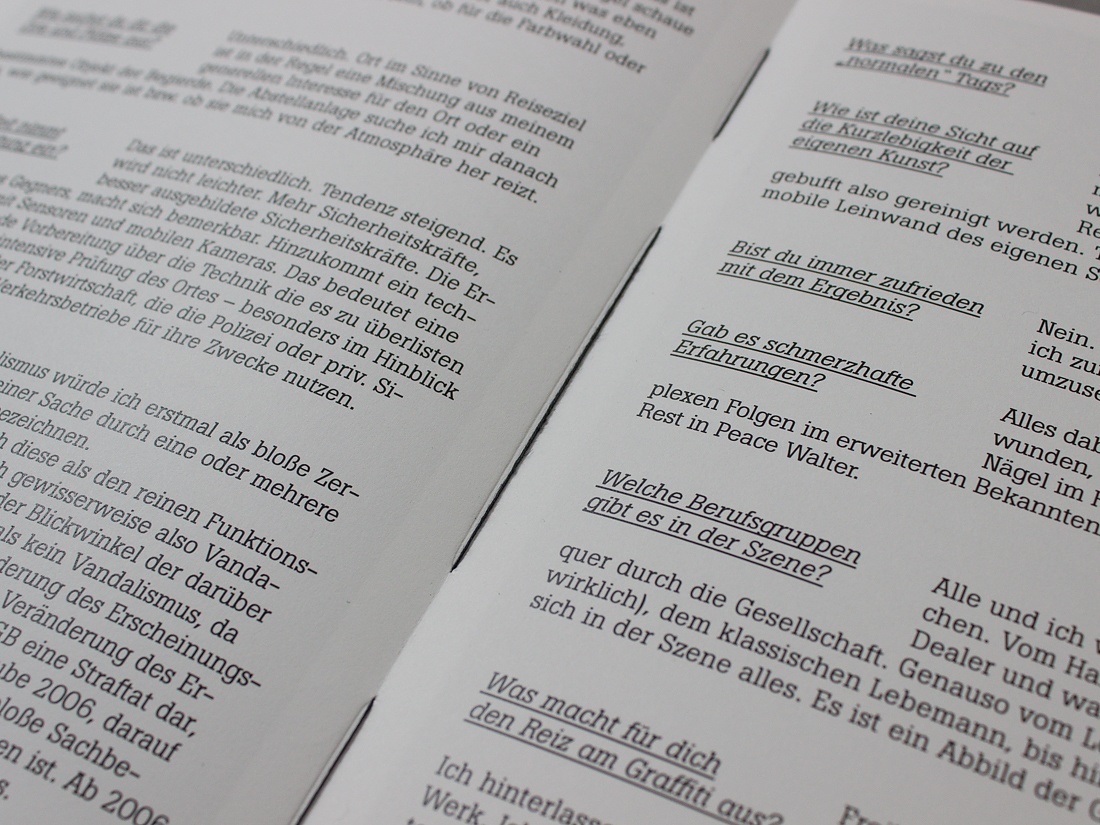 schaue
was eben
auch Kleidung,
ob für die Farbwahl oder
Unterschiedlich. Ort im Sinne von Reiseziel
ist in der Regel eine Mischung aus meinem
generellen Interesse für den Ort oder ein
Objekt der Begierde. Die Abstellanlage suche ich mir danach
geeignet sie ist bzw. ob sie mich von der Atmosphäre her reizt.
Das ist unterschiedlich. Tendenz steigend. Es
wird nicht leichter. Mehr Sicherheitskräfte,
besser ausgebildete Sicherheitskräfte. Die Er-
Gegners, macht sich bemerkbar. Hinzukommt ein tech-
mit Sensoren und mobilen Kameras. Das bedeutet eine
de Vorbereitung über die Technik die es zu überlisten
ntensive Prüfung des Ortes – besonders im Hinblick
er Forstwirtschaft, die die Polizei oder priv. Si-
erkehrsbetriebe für ihre Zwecke nutzen.
lismus würde ich erstmal als bloße Zer-
einer Sache durch eine oder mehrere
ezeichnen.
h diese als den reinen Funktions-
h gewisserweise also Vanda-
der Blickwinkel der darüber
als kein Vandalismus, da
derung des Erscheinungs-
Veränderung des Er-
GB eine Straftat dar,
ube 2006, darauf
loße Sachbe-
en ist. Ab 2006
s.
Was sagst du zu den
„normalen“ Tags?
Wie ist deine Sicht auf
die Kurzlebigkeit der
eigenen Kunst?
gebufft also gereinigt werden.
mobile Leinwand des eigenen S
Bist du immer zufrieden
mit dem Ergebnis?
Nein.
ich zu
umzuse
Gab es schmerzhafte
Erfahrungen?
Alles dab
wunden,
Nägel im
plexen Folgen im erweiterten Bekannten
Rest in Peace Walter.
Welche Berufsgruppen
gibt es in der Szene?
Alle und ich
chen. Vom Ha
Dealer und wa
quer durch die Gesellschaft. Genauso vom L
wirklich), dem klassischen Lebemann, bis hi
sich in der Szene alles. Es ist ein Abbild der G
Was macht für dich
den Reiz am Graffiti aus?
Ich hinterlass
Werk.